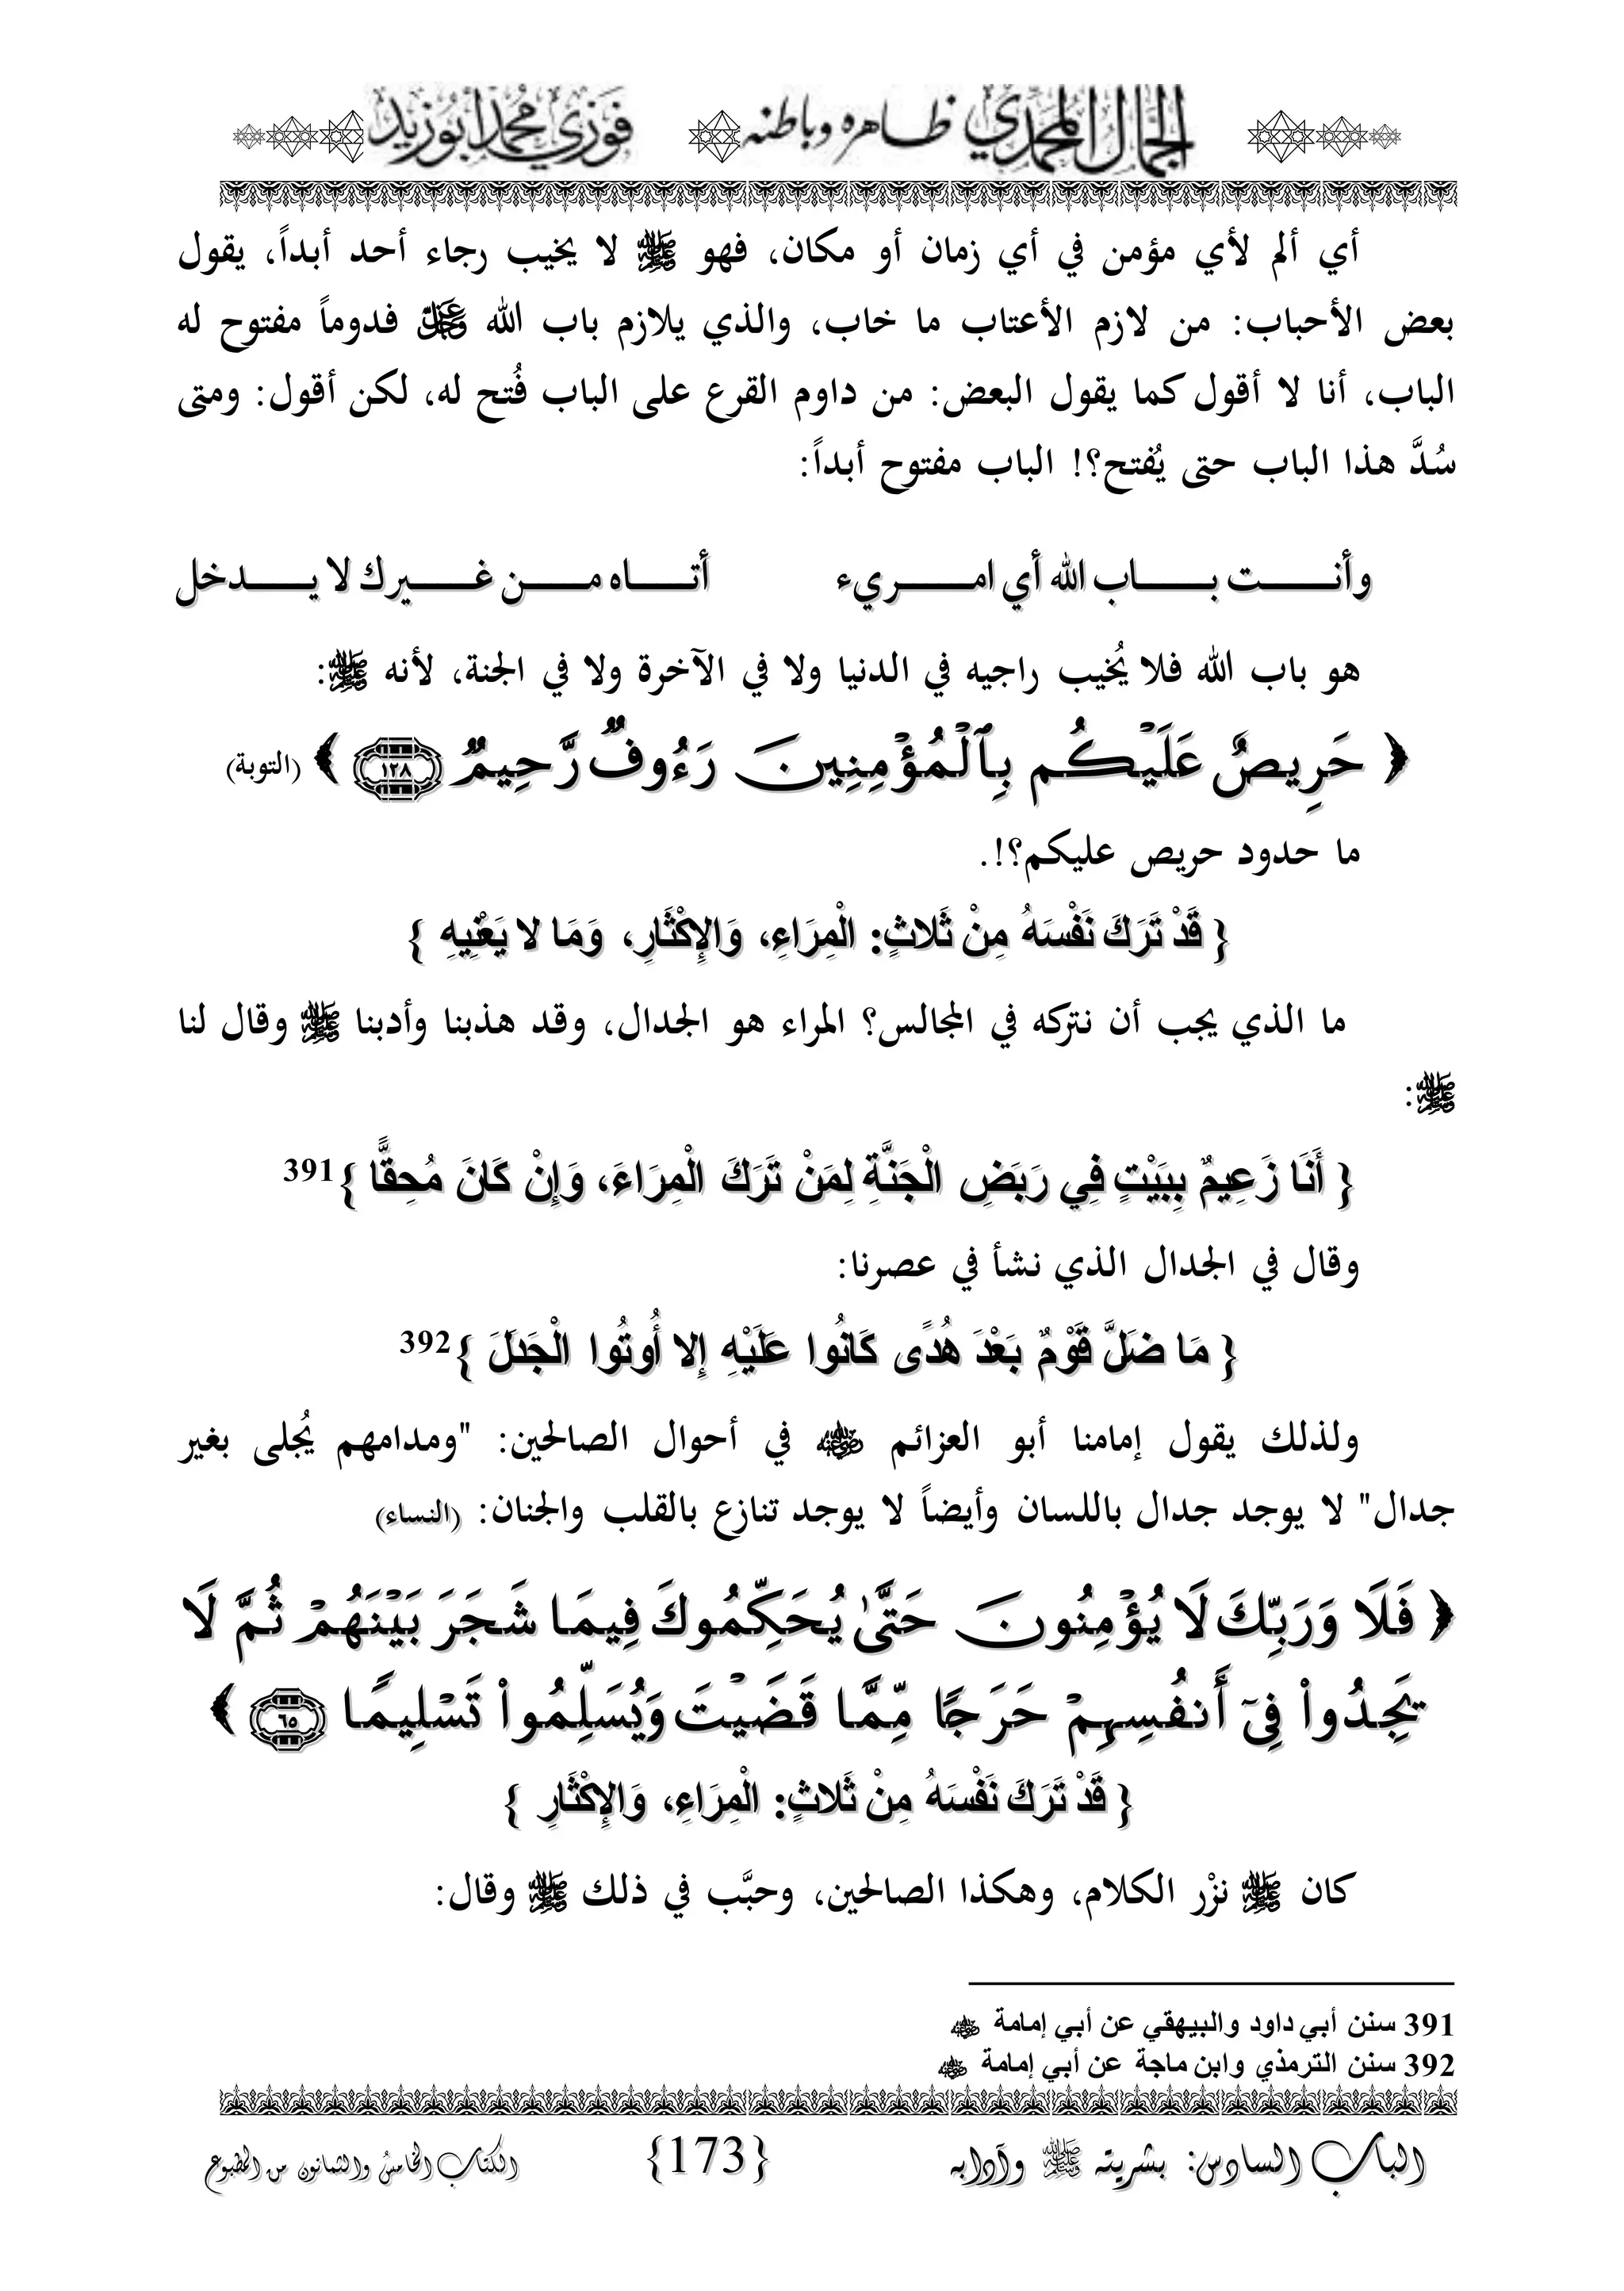 الجمال المحمدي ظاهره وباطنه فوزي محمد أبوزيد
أي ألم لأي مؤمن في أي زمان أو مكان، فهو ﷺ لا يخيب رجاء أحد أبداً، يقول
بعض الأحباب: من لازم الأعتاب ما خاب، والذي يلازم باب الله عزوجل فدوماً مفتوح له
الباب، أنا لا أقول كما يقول البعض: من داوم القرع على الباب فُتح له، لكن أقول: ومتى
سُدَّ هذا الباب حتى يُفتح؟! الباب مفتوح أبداً:
وأنـــــت بـــــاب الله أي امـــــريء أتـــــاه مـــــن غـــــيرك لا يـــــدخل
هو باب الله فلا يُخيب راجيه في الدنيا ولا في الآخرة ولا في الجنة، لأنه ﷺ:
﴿ حَرِيصٌ عَلَيْكُم بِٱلْمُؤْمِنِينَ رَءُوفٌ رَّحِيمٌ ١٢٨ ﴾ (التوبة)
ما حدود حريص عليكم؟!.
{ قَدْ تَرَكَ نَفْسَهُ مِنْ ثَلاثٍ: الْمِرَاءِ، وَالإِكْثَارِ، وَمَا لا يَعْنِيهِ }
ما الذي يجب أن نتركه في المجالس؟ المراء هو الجدال، وقد هذبنا وأدبنا ﷺ وقال لنا
ﷺ:
{ أَنَا زَعِيمٌ بِبَيْتٍ فِي رَبَضِ الْجَنَّةِ لِمَنْ تَرَكَ الْمِرَاءَ، وَإِنْ كَانَ مُحِقًّا }391
وقال في الجدال الذي نشأ في عصرنا:
{ مَا ضَلَّ قَوْمٌ بَعْدَ هُدًى كَانُوا عَلَيْهِ إِلا أُوتُوا الْجَدَلَ }392
ولذلك يقول إمامنا أبو العزائم رضي الله عنه في أحوال الصالحين: "ومدامهم يُجلى بغير
جدال" لا يوجد جدال باللسان وأيضاً لا يوجد تنازع بالقلب والجنان: (النساء)
﴿ فَلَا وَرَبِّكَ لَا يُؤْمِنُونَ حَتَّىٰ يُحَكِّمُوكَ فِيمَا شَجَرَ بَيْنَهُمْ ثُمَّ لَا
يَجِدُوا۟ فِىٓ أَنفُسِهِمْ حَرَجًا مِّمَّا قَضَيْتَ وَيُسَلِّمُوا۟ تَسْلِيمًا ٦٥ ﴾
{ قَدْ تَرَكَ نَفْسَهُ مِنْ ثَلاثٍ: الْمِرَاءِ، وَالإِكْثَارِ }
كان ﷺ نزْر الكلام، وهكذا الصالحين، وحبَّب في ذلك ﷺ وقال:
391 سنن أبي داود والبيهقي عن أبي إمامة رضي الله عنه
392 سنن الترمذي وابن ماجة عن أبي إمامة رضي الله عنه
الباب السادس: بشريته ﷺ وآدابه {173} الكتاب الخامس والثمانون من المطبوع